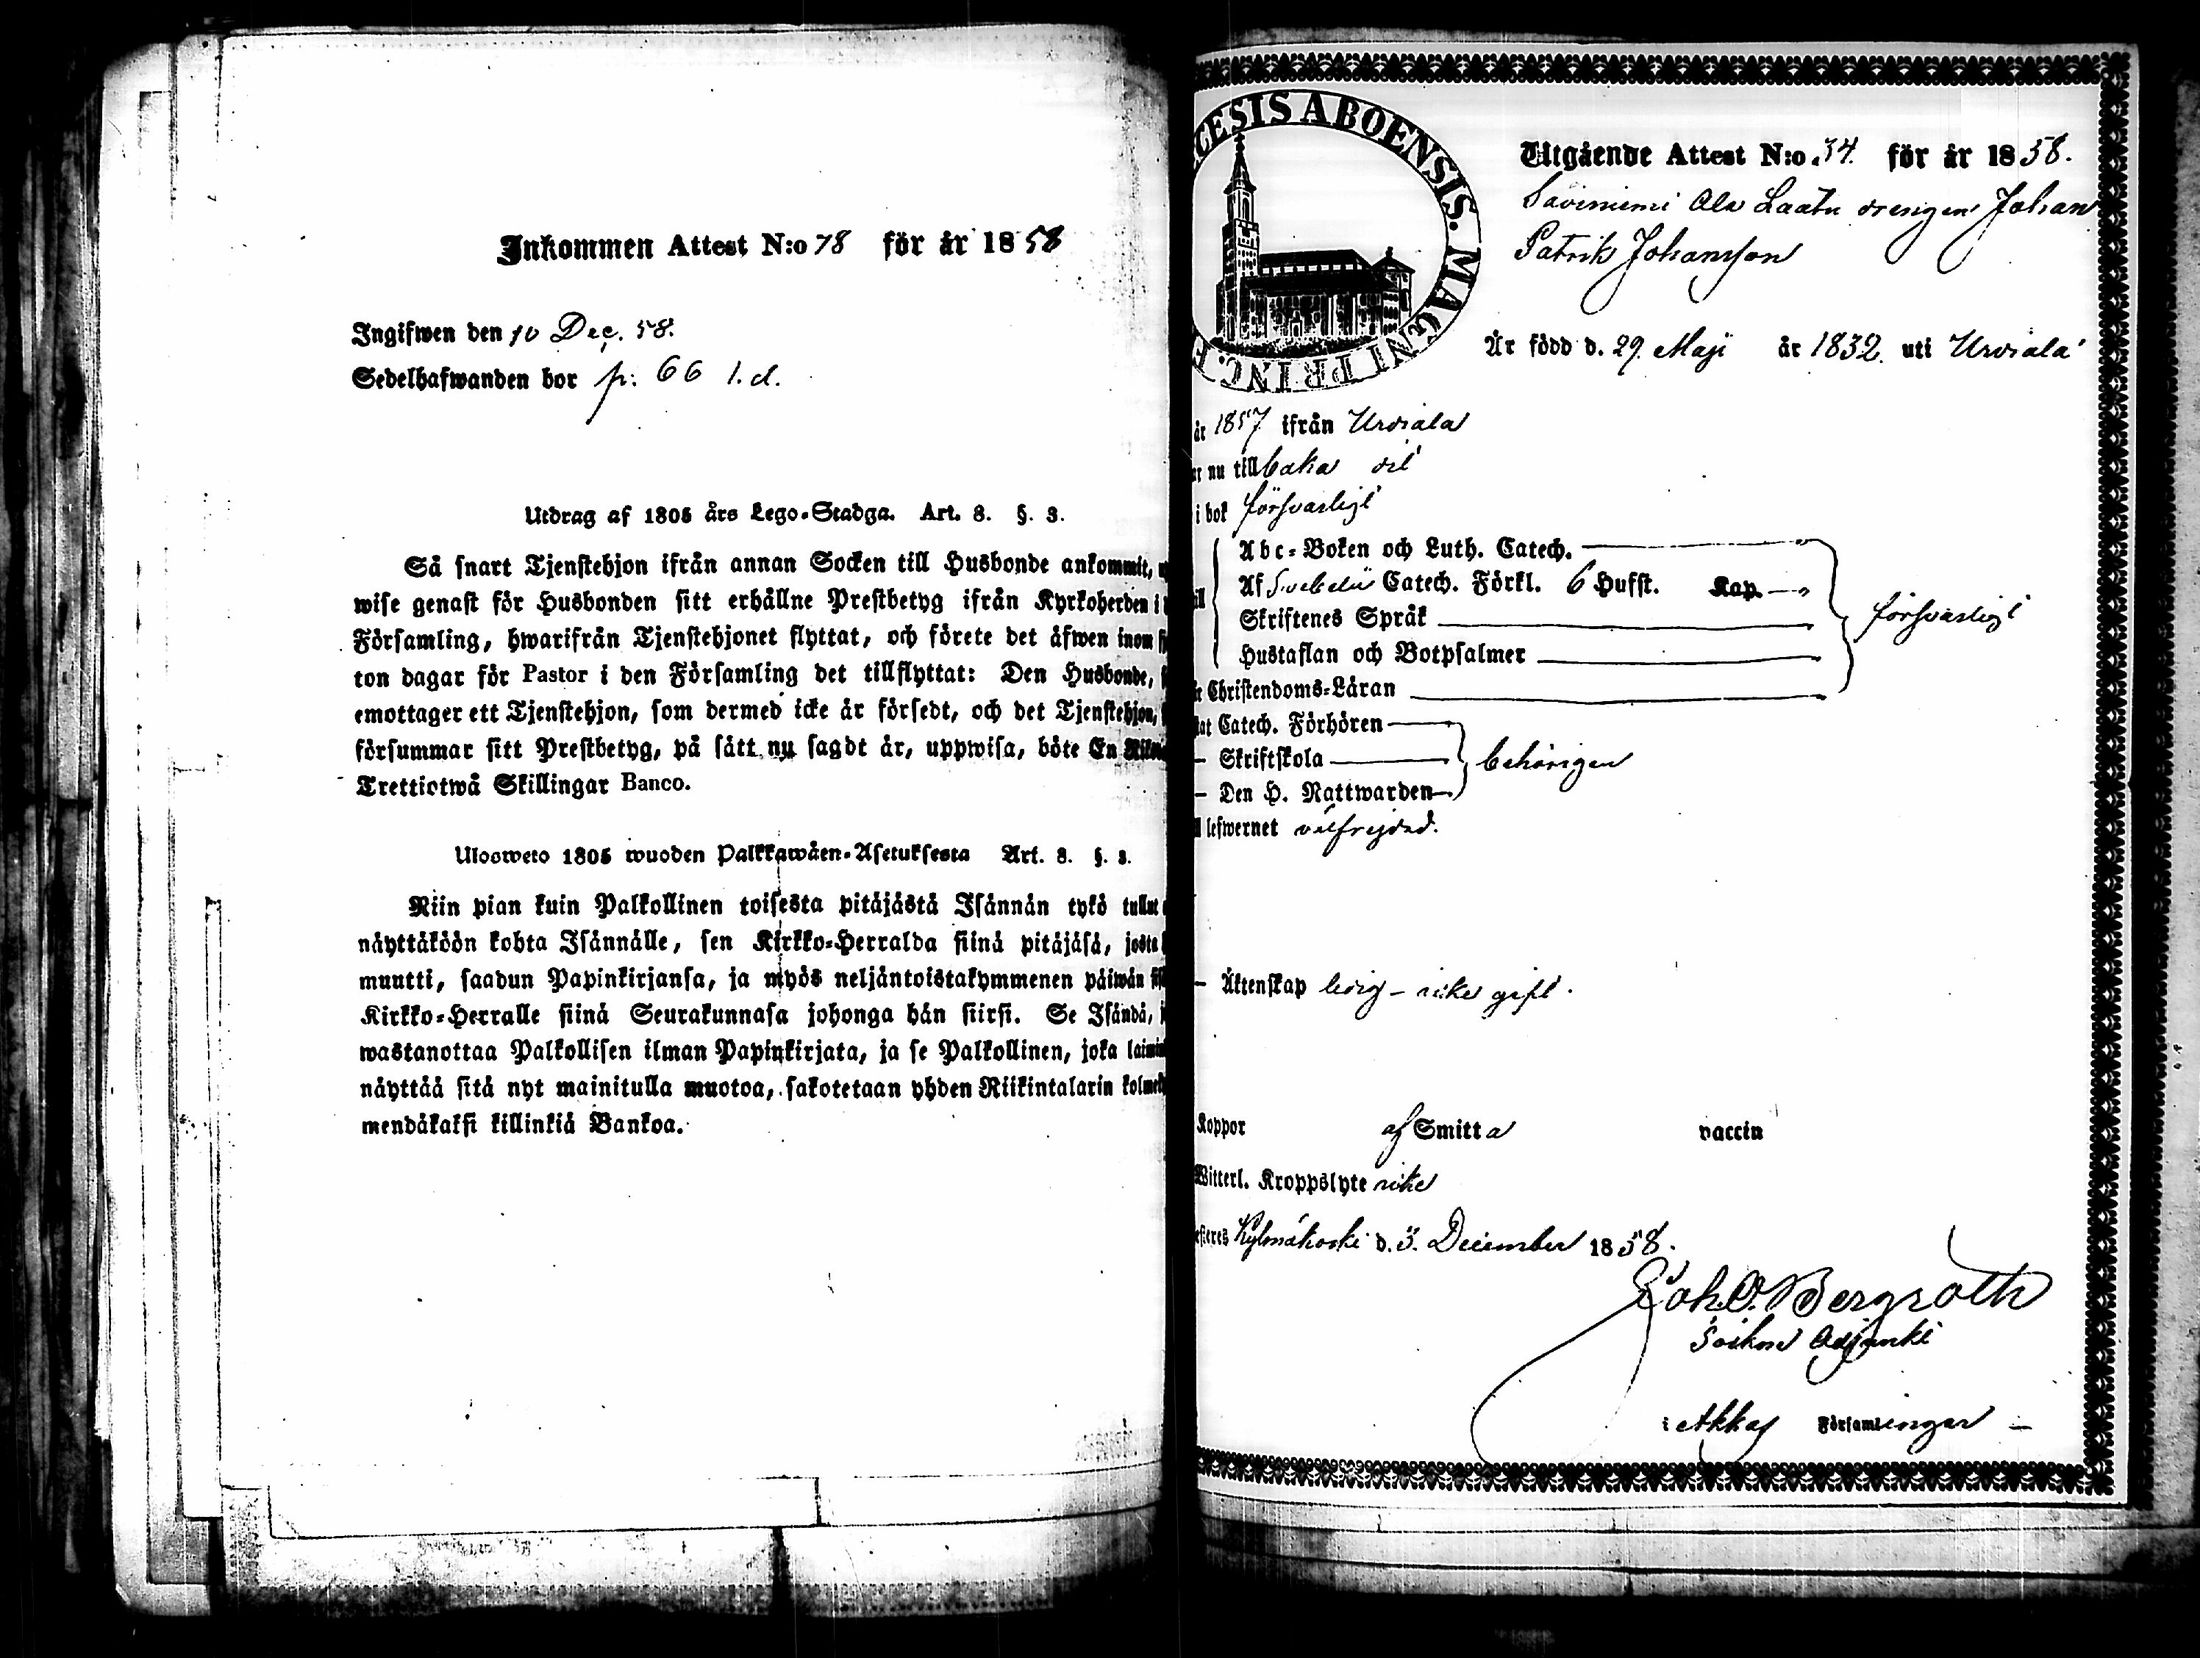 Inkommen Attest N:o 78 för år 1858
Ingifwen den 10 Dec. 58.
Sedelhafwanden bor p: 66 1. d.
Utdrag af 1805 års Lego-Stadga. Art. 8. §. 3.
Så snart Tjenstehjon ifrån annan Socken till Husbonde ankommit,
wise genast för Husbonden sitt erhållne Prestbetyg ifrån Kyrkoherden i
Församling, hwarifrån Tjenstehjonet flyttat, och förete det äfwen inom
ton dagar för Pastor i den Församling det tillflyttat: Den Husbonde,
emottager ett Tjenstehjon, som dermed icke är försedt, och det Tjenstehjon,
försummar sitt Prestbetyg, på sätt nu sagdt är, uppwisa, böte En
Trettiotwå Skillingar Banco.
Ulosweto 1805 wuoden Palkkawäen-Asetuksesta Art. 8. §. 3.
Niin pian kuin Palkollinen toisesta pitäjästä Isännän tykö tullut
näyttäköön kohta Isännälle, sen Kirkko-Herralda siinä pitäjäsä, josta
muutti, saadun Papinkirjansa, ja myös neljäntoistakymmenen päiwän
Kirkko-Herralle siinä Seurakunnasa johonga hän siirsi. Se Isändä,
wastanottaa Palkollisen ilman Papinkirjata, ja se Palkollinen, joka
näyttää sitä nyt mainitulla muotoa, sakotetaan yhden Riikintalarin
mendäkaksi killinkiä Bankoa.
CESIS ABOENSIS. MAGNI PRINC. F
Utgående Attest N:o 34. för år 1858.
Savimemi Ala Laatu drengen Johan
Patrik Johansson
Är född d. 29. Maji år 1832. uti Urdiala
år 1857 ifrån Urdiala
nu tillbaka dit
i bok försvarligt
Abc-Boken och Luth. Catech.
Af Svebelii Catech. Förkl. 6 Hufst. Kap.
Skriftenes Språk
försvarligt
Hustaflan och Botpsalmer
Christendoms-Läran
Catech. Förhören
Skriftskola
behörigen
Den H. Nattwarden
lefwernet välfrejdad.
Äktenskap ledig - icke gift.
Koppor af Smitta vaccin
Witterl. Kroppslyte icke
Kylmäkoski d. 3. December 1858.
Joh. O. Bergroth
Sockne Adjunkt
i Akkas Församlingar